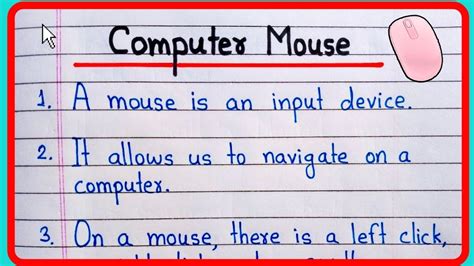 Computer Mouse
1. A mouse is an input device.
2. It allows us to navigate on a
computer.
3. On a mouse, there is a left click,